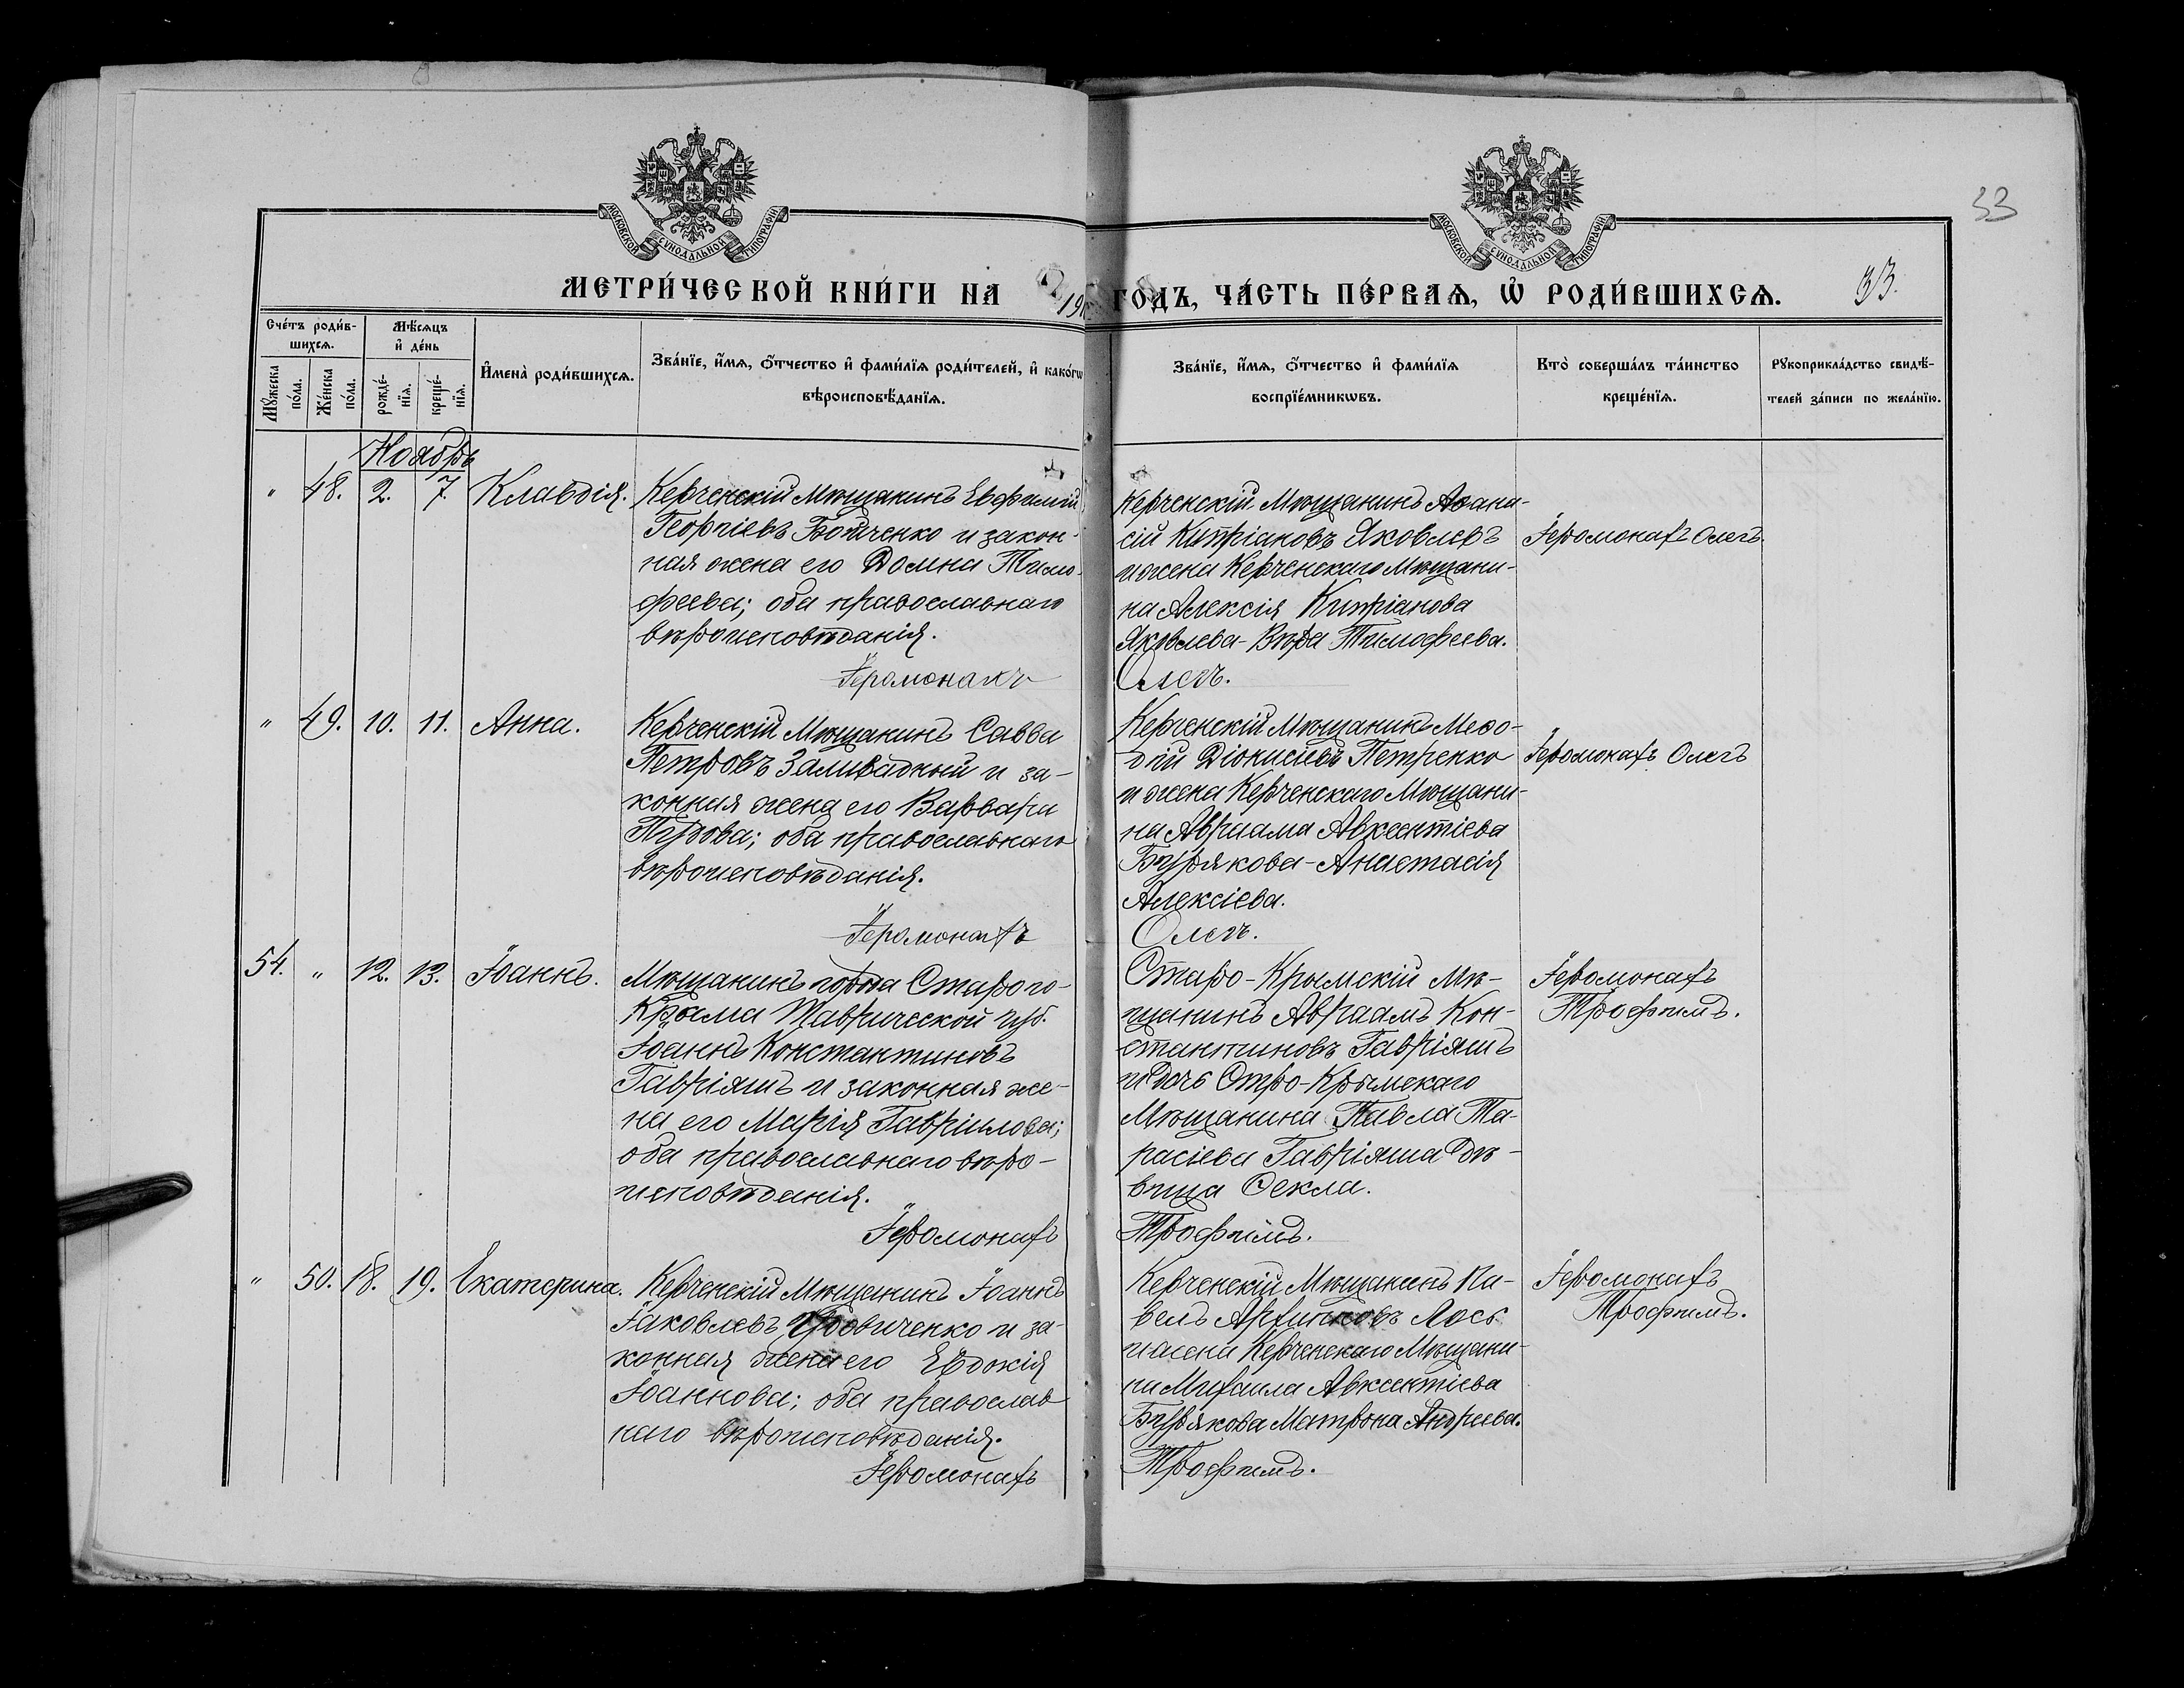 33
МОСКОВСКОЙ СУНОДАЛЬНОЙ ТИПОГРАФІИ
МОСКОВСКОЙ СУНОДАЛЬНОЙ ТИПОГРАФІИ
МЕТРИ́ЧЕСКОЙ КНИ́ГИ НА
ГОДЪ, ЧА́СТЬ ПЕ́РВАѦ, Ѡ РОДИ́ВШИХСѦ.
33.
Сче́тъ роди́в-
шихсѧ.
Му́жеска по́ла.
Же́нска по́ла.
Мѣ́сѧцъ
и҆ де́нь
рожде́-
нїѧ.
креще́-
нїѧ.
И҆мена̀ роди́вшихсѧ.
Зва́нїе, и҆́мѧ, ѻ҆́тчество и҆ фами́лїѧ роди́телей, и҆ како́гѡ
вѣроисповѣ́данїѧ.
Зва́нїе, и҆́мѧ, ѻ҆́тчество и҆ фами́лїѧ
воспрїе́мникѡвъ.
Кто̀ соверша́лъ та́инство
креще́нїѧ.
Рꙋкоприкла́дство свидѣ́-
телей за́писи по жела́нїю.
Ноябрь
" 48. 2. 7. Клавдія.
Керченскій Мѣщанинъ Евфимій
Георгіевъ Бойченко и закон-
ная жена его Домна Тимо-
феева; оба православнаго
вѣроисповѣданія.
Іеромонахъ
Керченскій Мѣщанинъ Аѳана-
сій Кипріановъ Яковлевъ
и жена Керченскаго Мѣщани-
на Алексія Кипріанова
Яковлева - Вѣра Тимофеева.
Олегъ.
Іеромонахъ Олегъ.
" 49. 10. 11. Анна.
Керченскій Мѣщанинъ Савва
Петровъ Заливадный и за-
конная жена его Варвара
оба православнаго
вѣроисповѣданія.
Іеромонахъ
Керченскій Мѣщанинъ Меѳо-
дій Діонисіевъ Петренко
и жена Керченскаго Мѣщани-
на Авраама Авксентіева
Бурякова - Анастасія
Алексіева.
Олегъ.
Іеромонахъ Олегъ
54. " 12. 13. Іоаннъ.
Мѣщанинъ города Стараго-
Крыма Таврической губ.
Іоаннъ Константиновъ
Гавріяшъ и законная же-
на его Марія Гавріилова;
оба православнаго вѣро-
исповѣданія.
Іеромонахъ
Старо-Крымскій Мѣ-
щанинъ Авраамъ Кон-
стантиновъ Гавріяшъ
и дочь Стро-Крымскаго
Мѣщанина Павла Та-
расіева Гавріяша дѣ-
вица Ѳекла.
Трофимъ.
Іеромонахъ
Трофимъ.
" 50. 18. 19. Екатерина.
Керченскій Мѣщанинъ Іоаннъ
Іаковлевъ и за-
конная жена его Евдокія
Іоаннова; оба православ
наго вѣроисповѣданія.
Іеромонахъ
Керченскій Мѣщанинъ Па-
велъ Лось
и жена Керченскаго Мѣщани-
на Михаила Авксентіева
Бурякова Матрона Андреева.
Трофимъ.
Іеромонахъ
Трофимъ.